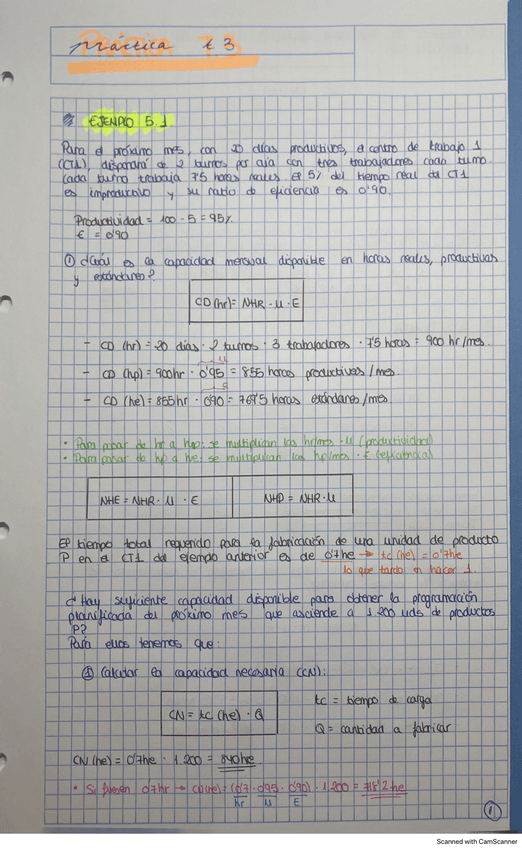 práctica t 3
EJEMPLO 5.1.
Para el próximo mes, con 20 días productivos, el centro de trabajo 1
(CT1), dispondrá de 2 turnos por día con tres trabajadores cada turno.
Cada turno trabaja 7'5 horas reales. El 5% del tiempo real del CT1
es improductivo y su ratio de eficiencia es 0'90.
Productividad = 100 - 5 = 95%
E = 0'90
① ¿Cuál es la capacidad mensual disponible en horas reales, productivas
y estándares?
CD (hr) = NHR · U · E
- CD (hr) = 20 días · 2 turnos · 3 trabajadores · 7'5 horas = 900 hr/mes.
U
- CD (hp) = 900hr · 0'95 = 855 horas productivas/mes.
E
- CD (he) = 855hr · 0'90 = 769'5 horas estándares/mes
· Para pasar de hr a hp: se multiplican las hr/mes · U (productividad)
· Para pasar de hp a he: se multiplican las hp/mes · E (eficiencia)
NHE = NHR · U · E NHP = NHR · U
El tiempo total requerido para la fabricación de una unidad de producto
P en el CT1 del ejemplo anterior es de 0'7he → tc (he) = 0'7he
lo que tardo en hacer 1.
¿Hay suficiente capacidad disponible para obtener la programación
planificada del próximo mes que asciende a 1.200 uds de productos
P?
Para ellos tenemos que:
① Calcular la capacidad necesaria (CN):
CN = tc (he) · Q
tc = tiempo de carga
Q = cantidad a fabricar
CN (he) = 0'7he · 1.200 = 840he
· Si fuesen 0'7hr → (0'7 · 0'95 · 0'90) · 1.200 = 718'2 he
hr U E
1
Scanned with CamScanner